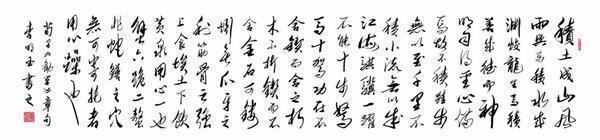 積土成山風
雨興焉積水成
渊蛟龍生焉積
善成德而神
明自得聖心備
焉故不積跬步
無以至千里不
積小流無以成
江海騏驥一躍
不能十步駑
馬十駕功在不
舍鍥而舍之朽
木不折鍥而不
舍金石可鏤
蚓無爪牙之
利筋骨之强
上食埃土下飲
黄泉用心一也
蟹六跪二螯
非蛇鱔之穴
無可寄托者
用心躁也
荀子《勸學》章句
李明玉書之